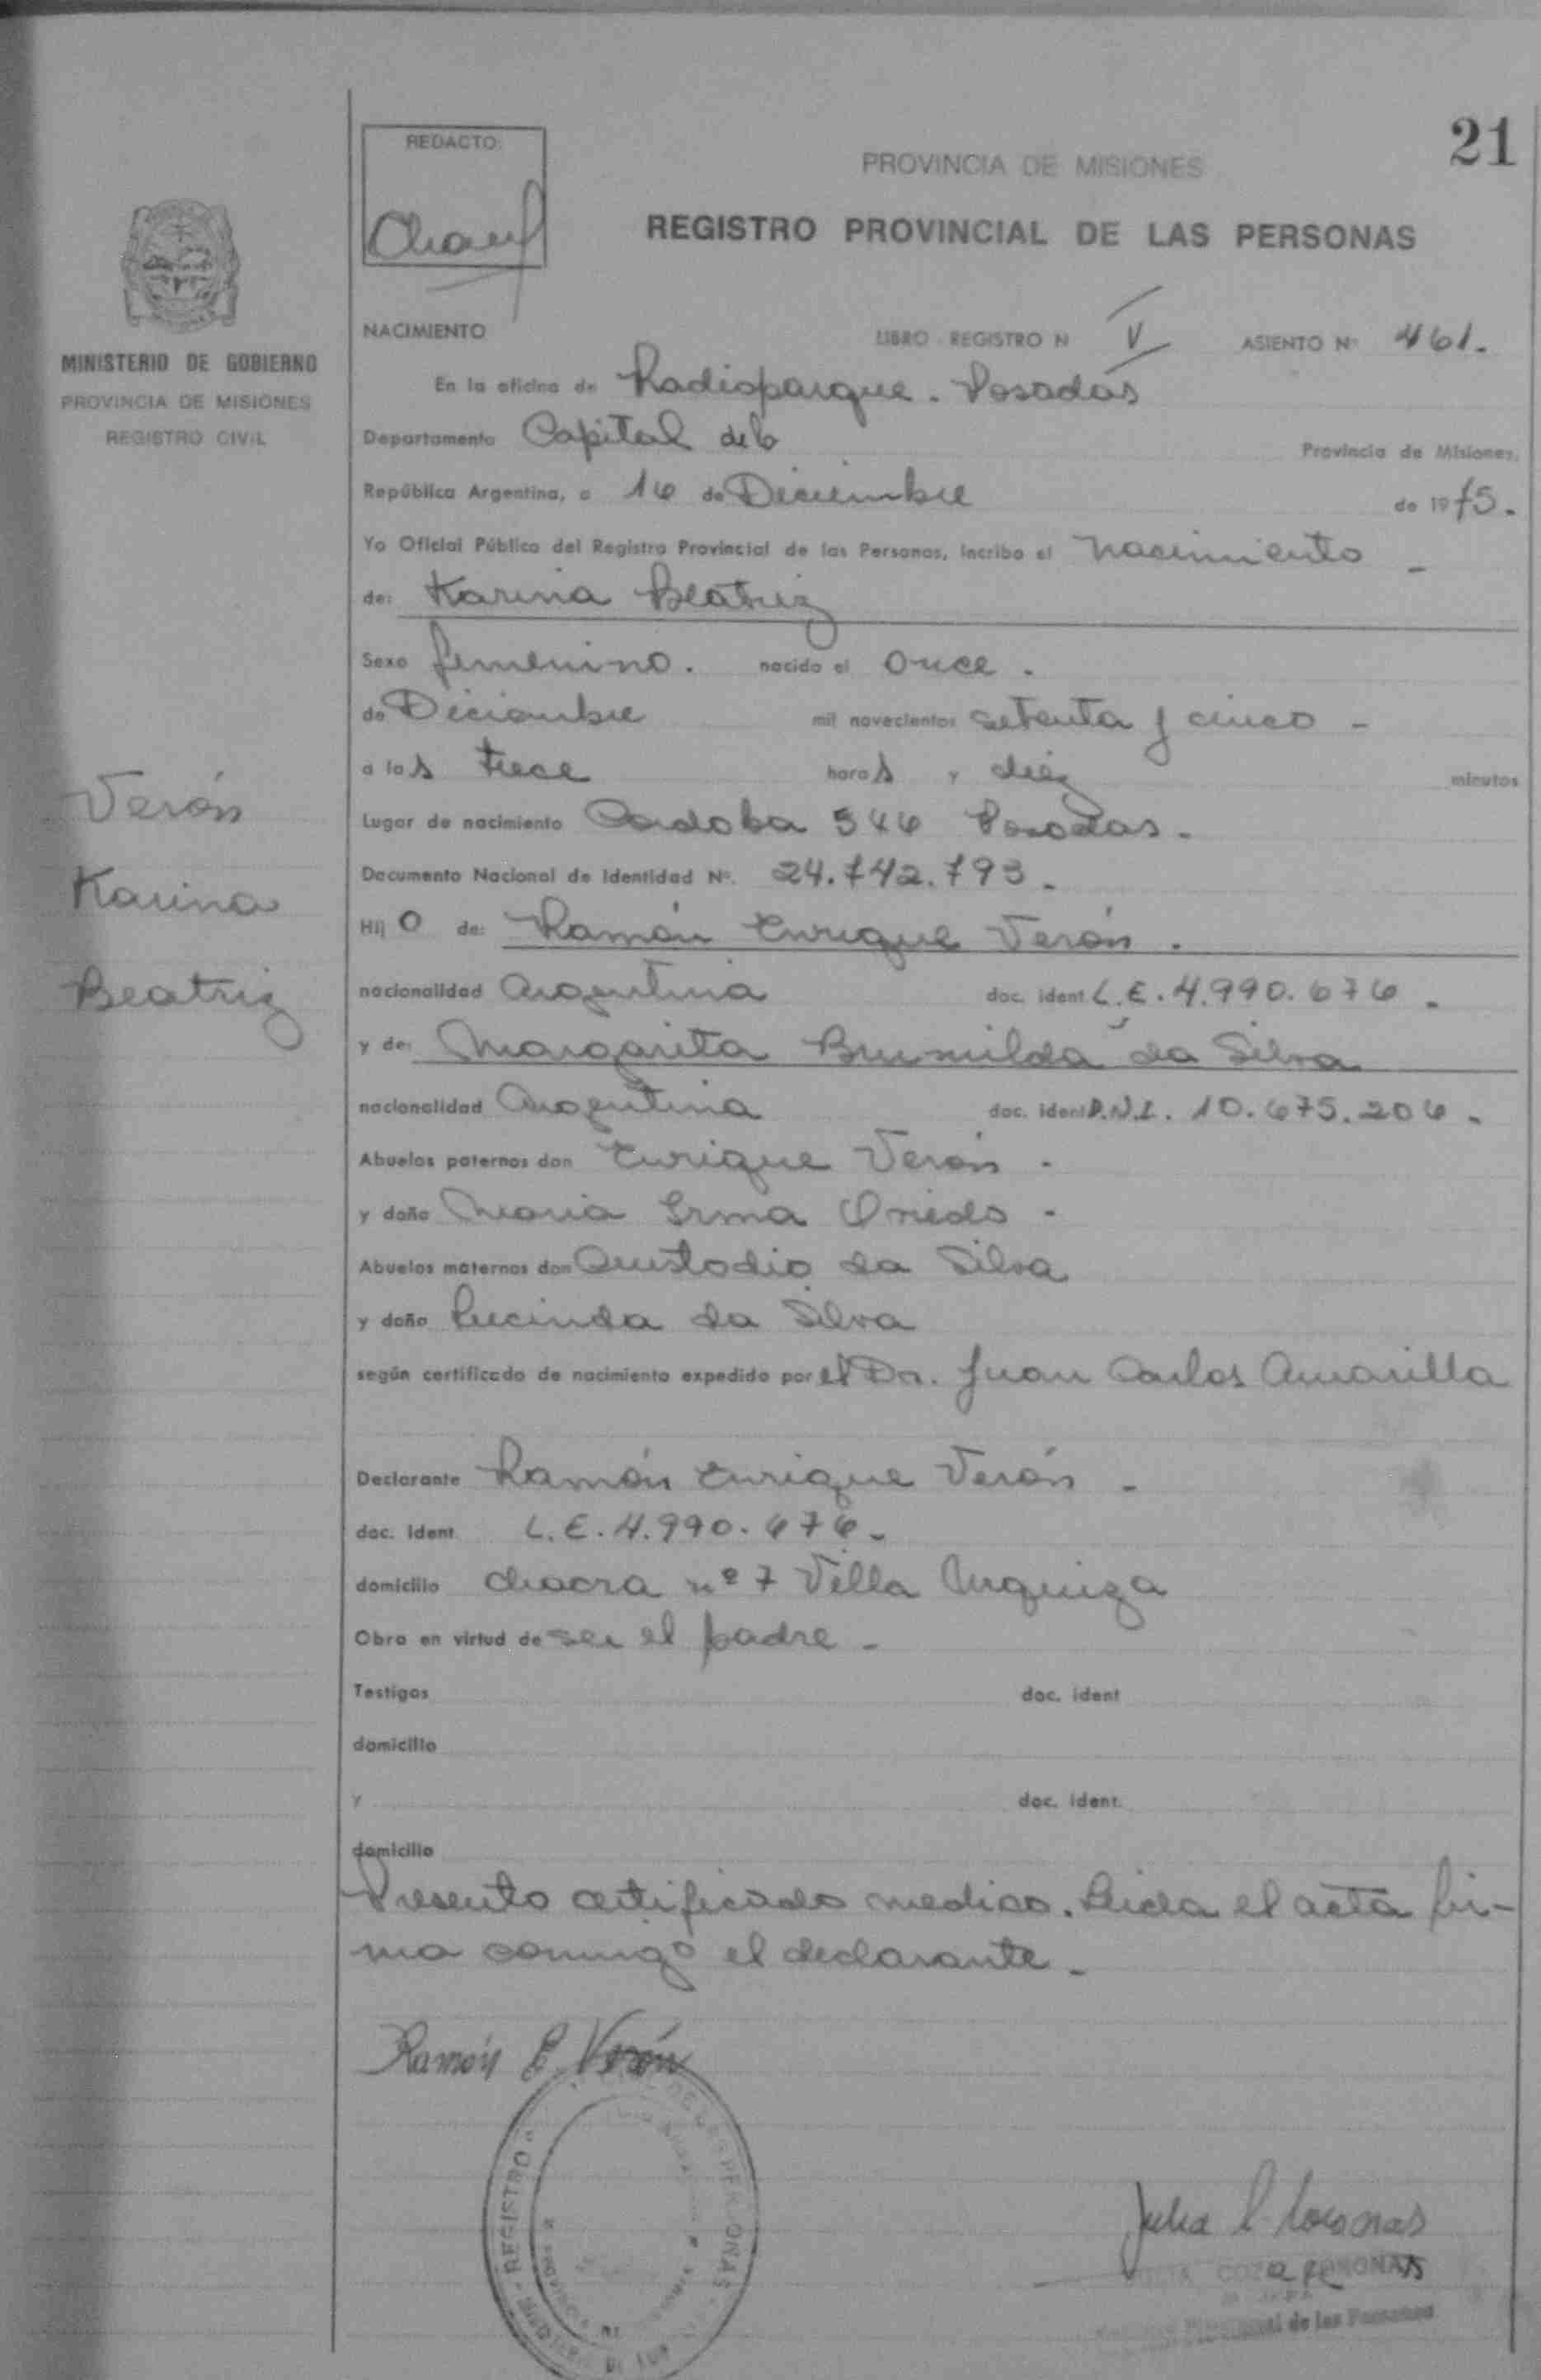 21
REDACTO:
PROVINCIA DE MISIONES
REGISTRO PROVINCIAL DE LAS PERSONAS
MINISTERIO DE GOBIERNO
PROVINCIA DE MISIONES
REGISTRO CIVIL
NACIMIENTO LIBRO REGISTRO N V ASIENTO Nº 461.
En la oficina de Radioparque. Posadas
Departamento Capital de la Provincia de Misiones,
República Argentina, a 16 de Diciembre de 1975.
Yo Oficial Público del Registro Provincial de las Personas, incribo el nacimiento -
de: Karina Beatriz
Sexo femenino. nacido el once.
de Diciembre mil novecientos setenta y cinco -
a las trece horas y diez minutos
Lugar de nacimiento Cordoba 546 Posadas.
Documento Nacional de Identidad Nº. 24.742.793.
Verón
Karina
Beatriz
Hijo de: Ramón Enrique Verón.
nacionalidad Argentina doc. ident. L.E. 4.990.676.
y de: Margarita Brunilda da Silva
nacionalidad Argentina doc. ident D.N.I. 10.675.206.
Abuelos paternos don Enrique Verón.
y doña Maria Irma Oviedo.
Abuelos maternos don Custodio da Silva
y doña Lucinda da Silva
según certificado de nacimiento expedido por el Dr. Juan Carlos Amarilla
Declarante Ramón Enrique Verón -
doc. ident. L.E. 4.990.676.
domicilio chacra nº 7 Villa Urquiza
Obra en virtud de ser el padre -
Testigos doc. ident
domicilio
y doc. ident.
domicilio
Presento certificado medico. Leida el acta fir-
ma conmigo el declarante -
Ramón E. Verón
REGISTRO DE LAS PERSONAS
Julia
de las Personas